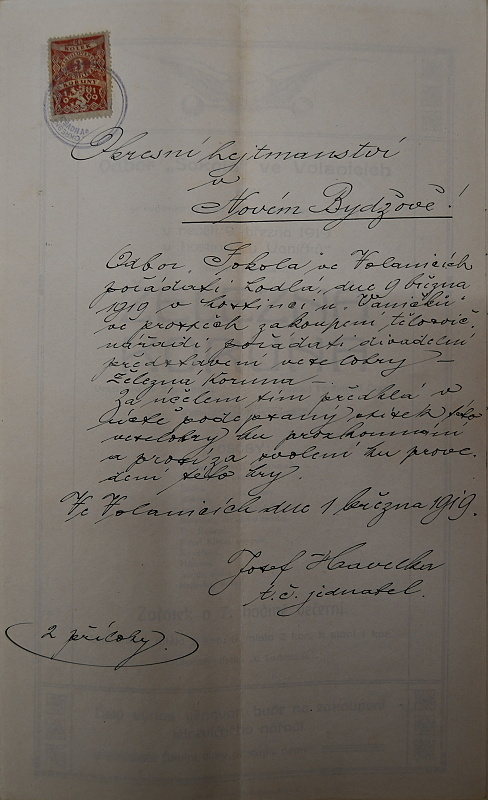 3
Okresní hejtmanství
v
Novém Bydžově!
Odbor „Sokola" ve Volanicích
pořádati dne 9 března
1919 v hostinci u „Vaníčků"
ve prospěch zakoupení tělocvič.
nářadí, pořádati divadelní
představení veselohry –
Železná koruna –
Za účelem tím předkládá v
úctě podepsaný této
veselohry ku prozkoumání
a prosí za svolení ku prove-
dení této hry.
Ve Volanicích dne 1 března 1919.
Josef Havelka
t. č. jednatel.
2 přílohy.